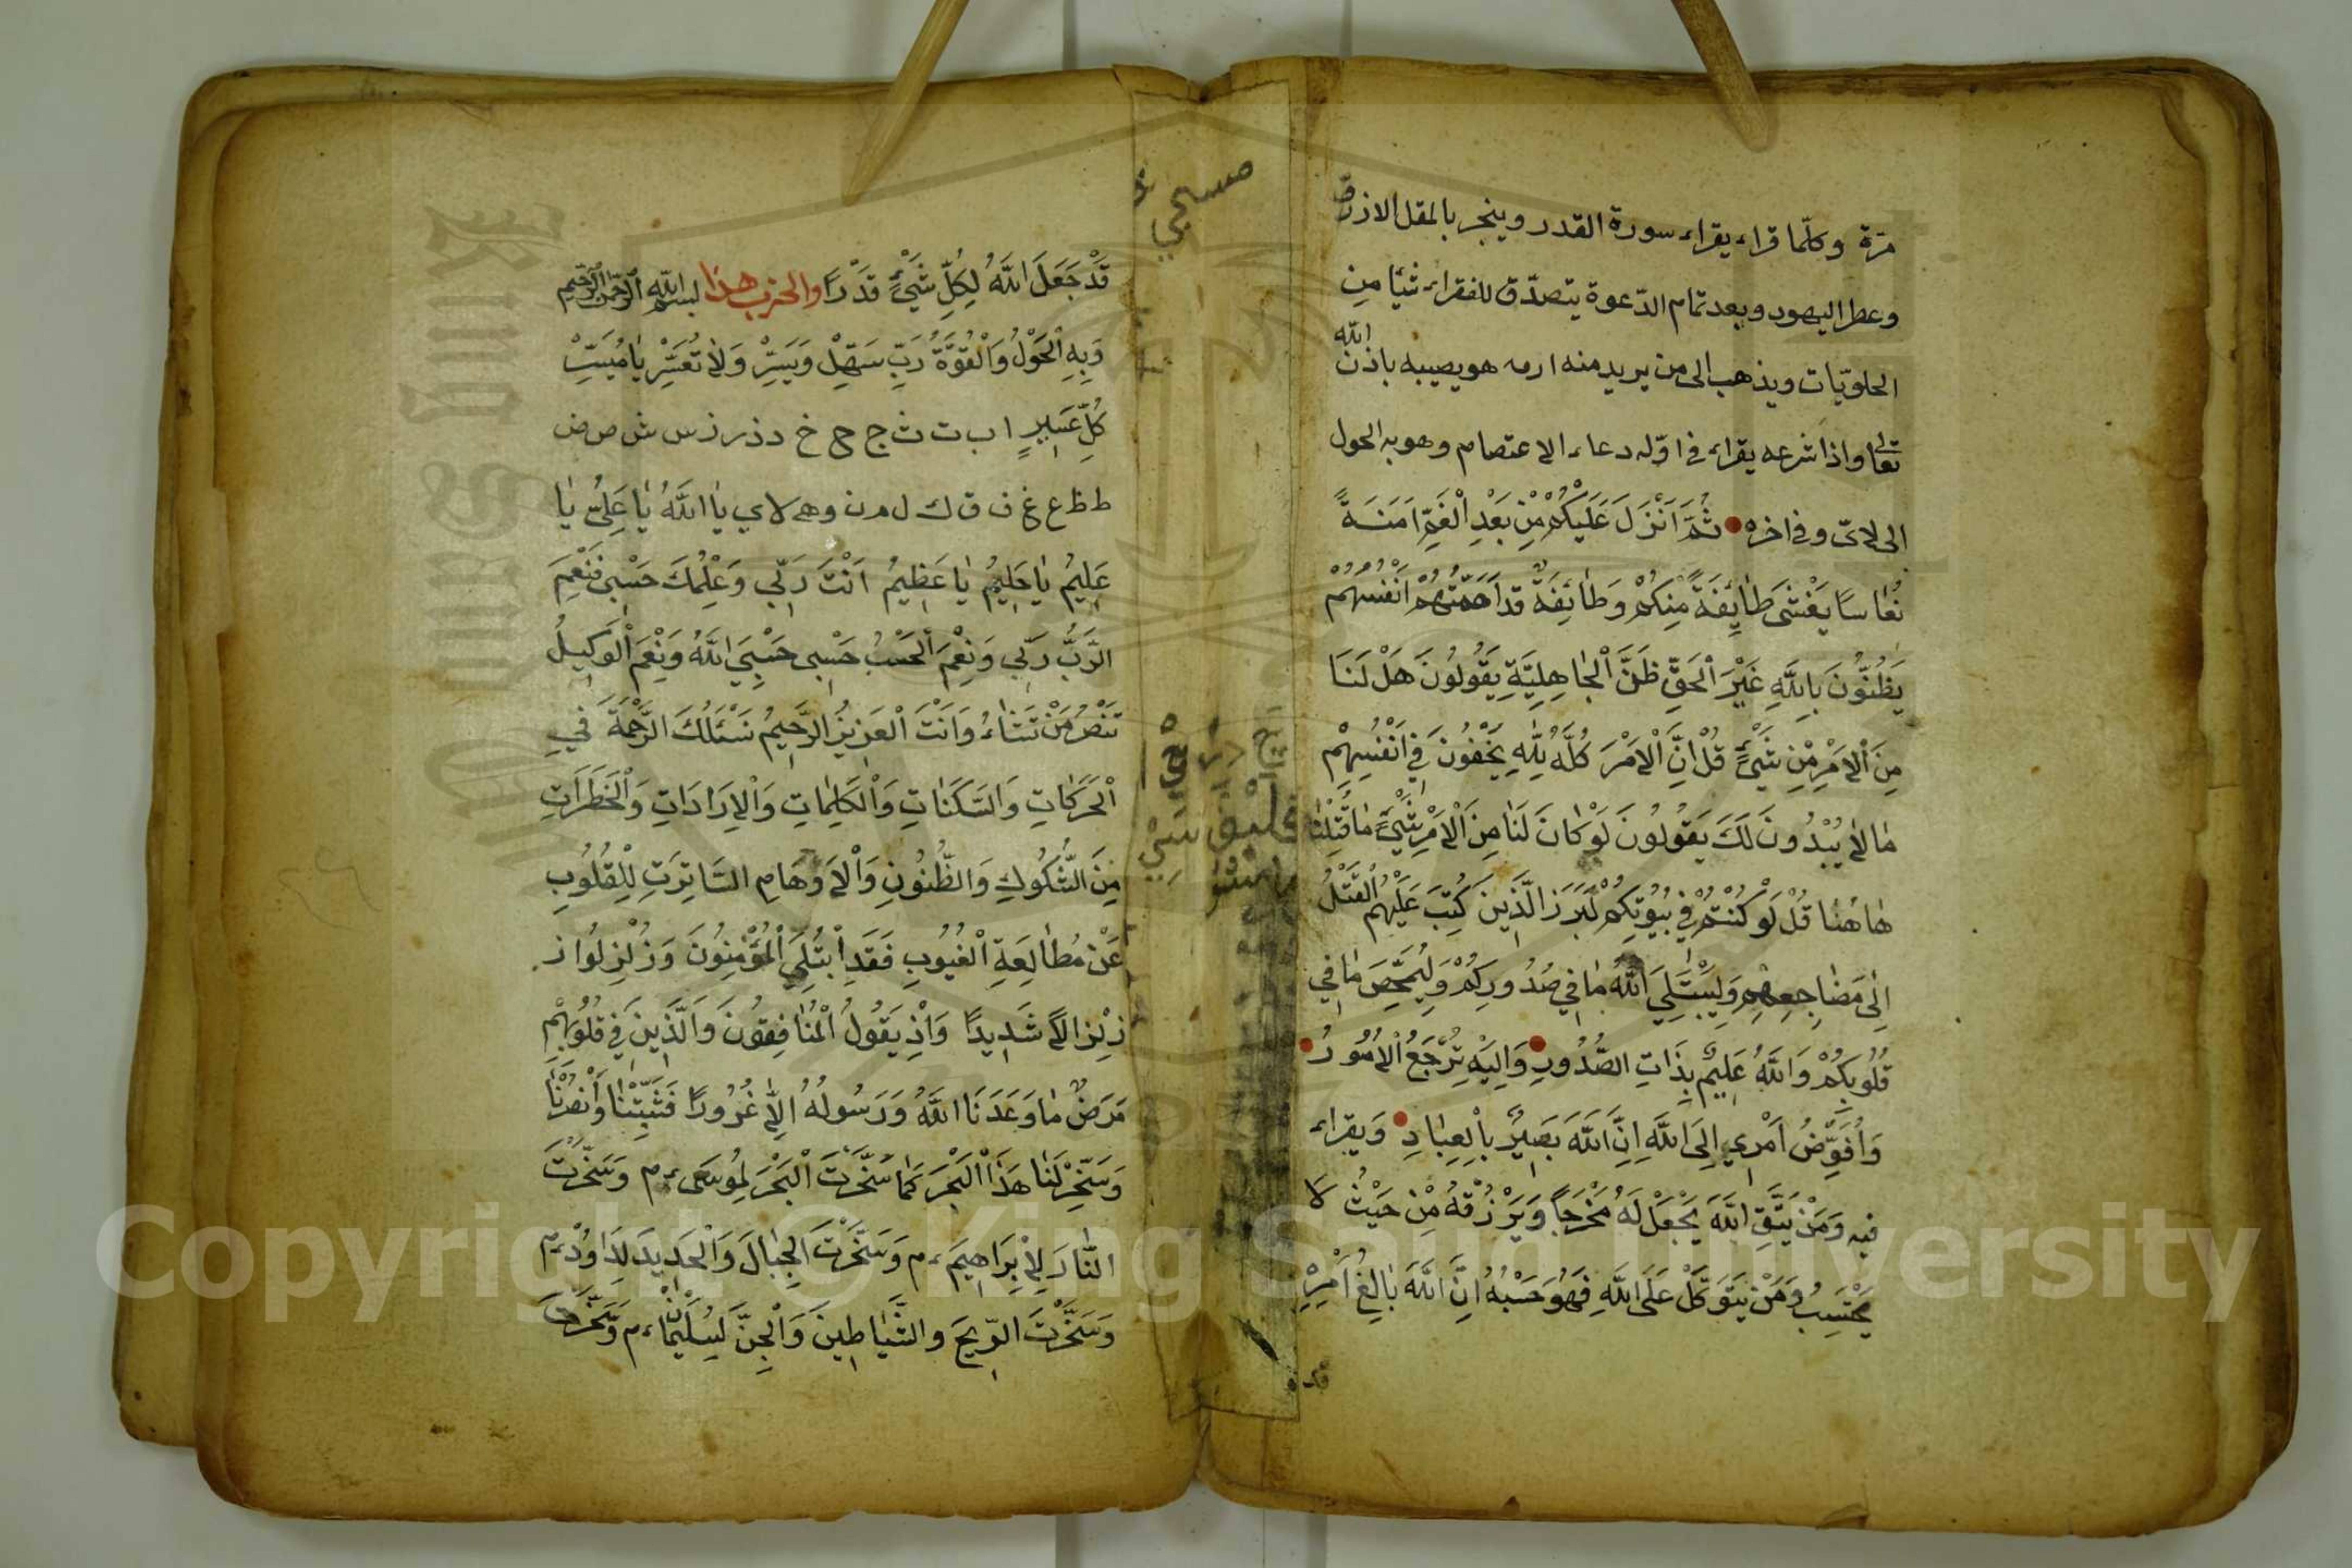 مرّة وكلّما قراء يقراء سورة القدر وينجر بالمقل الازرق
وعطر اليهود وبعد تمام الدّعوة يتصدّق للفقراء شيئا من
الحلويّات ويذهب الى من يريد منه ارمه هو يصيبه باذن الله
تعالى واذا شرعه يقراء في اوّله دعاء الاعتصام وهو به الحول
الى لاى وفي اخره ثُمَّ اَنْزَلَ عَلَيْكُمْ مِنْ بَعْدِ الْغَمِّ اَمَنَةً
نُعَاسًا يَغْشَى طَائِفَةً مِنْكُمْ وَطَائِفَةٌ قَدْ اَهَمَّتْهُمْ اَنْفُسُهُمْ
يَظُنُّونَ بِاللَّهِ غَيْرَ الْحَقِّ ظَنَّ الْجَاهِلِيَّةِ يَقُولُونَ هَلْ لَنَا
مِنَ الْاَمْرِ مِنْ شَيْءٍ قُلْ اِنَّ الْاَمْرَ كُلَّهُ لِلَّهِ يُخْفُونَ فِي اَنْفُسِهِمْ
مَا لَا يُبْدُونَ لَكَ يَقُولُونَ لَوْ كَانَ لَنَا مِنَ الْاَمْرِ شَيْءٌ مَا قُتِلْنَا
هَاهُنَا قُلْ لَوْ كُنْتُمْ فِي بُيُوتِكُمْ لَبَرَزَ الَّذِينَ كُتِبَ عَلَيْهِمُ الْقَتْلُ
اِلَى مَضَاجِعِهِمْ وَلِيَبْتَلِيَ اللَّهُ مَا فِي صُدُورِكُمْ وَلِيُمَحِّصَ مَا فِي
قُلُوبِكُمْ وَاللَّهُ عَلِيمٌ بِذَاتِ الصُّدُورِ وَاِلَيْهِ تُرْجَعُ الْاُمُورُ
وَاُفَوِّضُ اَمْرِي اِلَى اللَّهِ اِنَّ اللَّهَ بَصِيرٌ بِالْعِبَادِ وَيقراء
فيه وَمَنْ يَتَّقِ اللَّهَ يَجْعَلْ لَهُ مَخْرَجًا وَيَرْزُقْهُ مِنْ حَيْثُ لَا
يَحْتَسِبُ وَمَنْ يَتَوَكَّلْ عَلَى اللَّهِ فَهُوَ حَسْبُهُ اِنَّ اللَّهَ بَالِغُ اَمْرِهِ
قد
قَدْ جَعَلَ اللَّهُ لِكُلِّ شَيْءٍ قَدْرًا والحزب هذا بسم الله الرحمن الرحيم
وَبِهِ الْحَوْلُ وَالْقُوَّةُ رَبِّ سَهِّلْ وَيَسِّرْ وَلَا تُعَسِّرْ يَا مُيَسِّرَ
كُلِّ عَسِيرٍ ا ب ت ث ج ح خ د ذ ر ز س ش ص ض
ط ظ ع غ ف ق ك ل م ن و ه لا ي يَا اللَّهُ يَا عَلِيُّ يَا
عَلِيمُ يَا حَلِيمُ يَا عَظِيمُ اَنْتَ رَبِّي وَعِلْمُكَ حَسْبِي فَنِعْمَ
الرَّبُّ رَبِّي وَنِعْمَ الْحَسْبُ حَسْبِي حَسْبِيَ اللَّهُ وَنِعْمَ الْوَكِيلُ
تَنْصُرُ مَنْ تَشَاءُ وَاَنْتَ الْعَزِيزُ الرَّحِيمُ نَسْئَلُكَ الرَّحْمَةَ فِي
الْحَرَكَاتِ وَالسَّكَنَاتِ وَالْكَلِمَاتِ وَالْاِرَادَاتِ وَالْخَطَرَاتِ
مِنَ الشُّكُوكِ وَالظُّنُونِ وَالْاَوْهَامِ السَّاتِرَةِ لِلْقُلُوبِ
عَنْ مُطَالَعَةِ الْغُيُوبِ فَقَدِ ابْتُلِيَ الْمُؤْمِنُونَ وَزُلْزِلُوا ز
زِلْزَالًا شَدِيدًا وَاِذْ يَقُولُ الْمُنَافِقُونَ وَالَّذِينَ فِي قُلُوبِهِمْ
مَرَضٌ مَا وَعَدَنَا اللَّهُ وَرَسُولُهُ اِلَّا غُرُورًا فَثَبِّتْنَا وَانْصُرْنَا
وَسَخِّرْ لَنَا هَذَا الْبَحْرَ كَمَا سَخَّرْتَ الْبَحْرَ لِمُوسَى ءم وَسَخَّرْتَ
النَّارَ لِاِبْرَاهِيمَ ءم وَسَخَّرْتَ الْجِبَالَ وَالْحَدِيدَ لِدَاوُدَ ءم
وَسَخَّرْتَ الرِّيحَ وَالشَّيَاطِينَ وَالْجِنَّ لِسُلَيْمَانَ ءم وَسَخَّرْتَ
Copyright © King Saud University